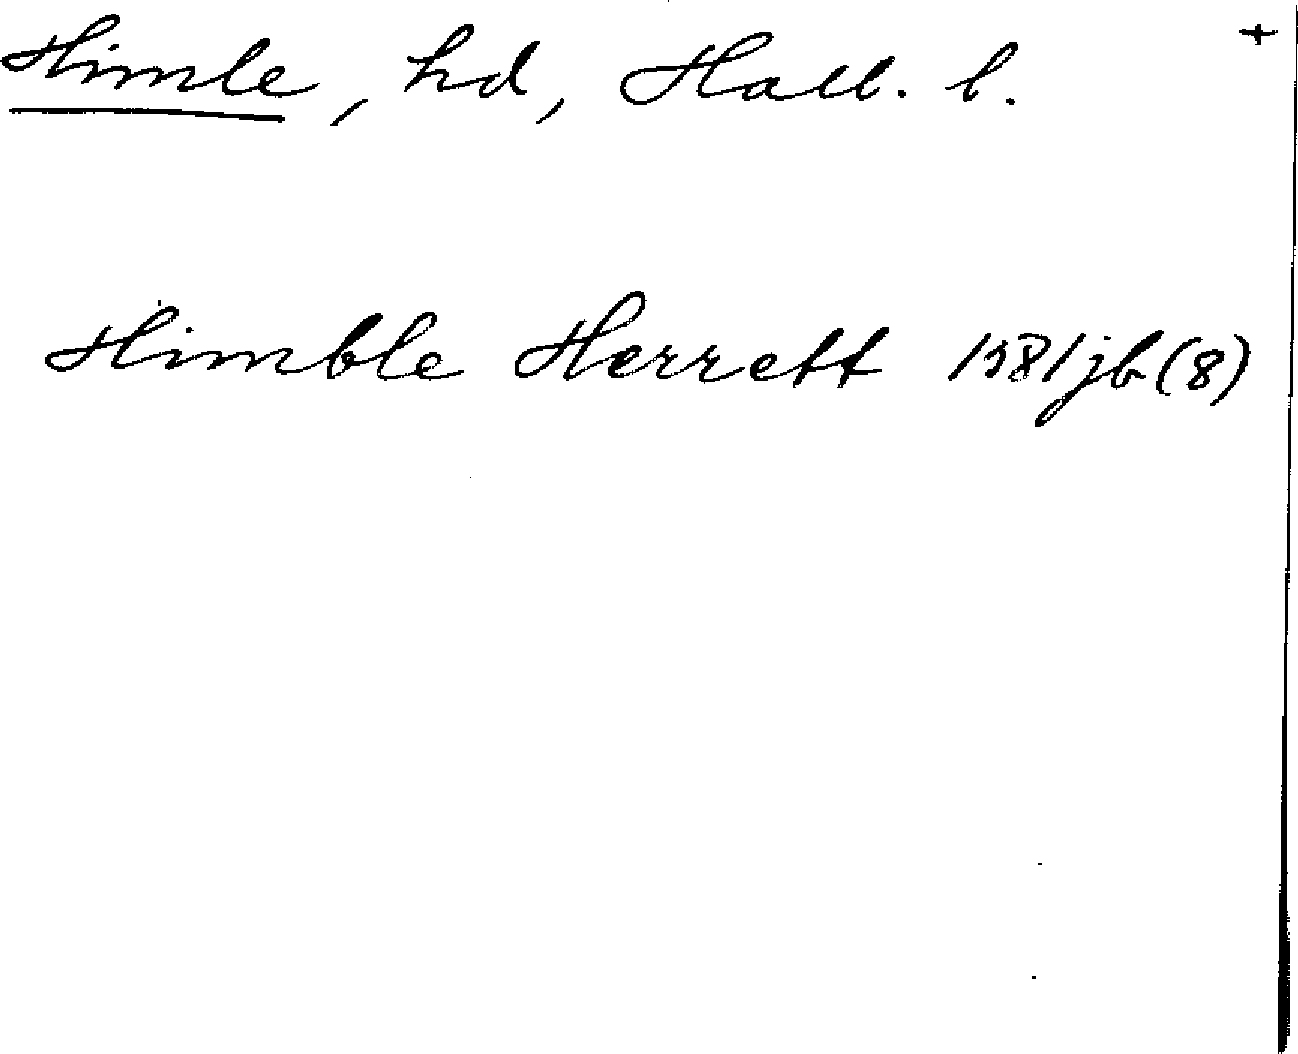 Himle, hd, Hall. l. +
Himble Herrett 1581 jb (8)